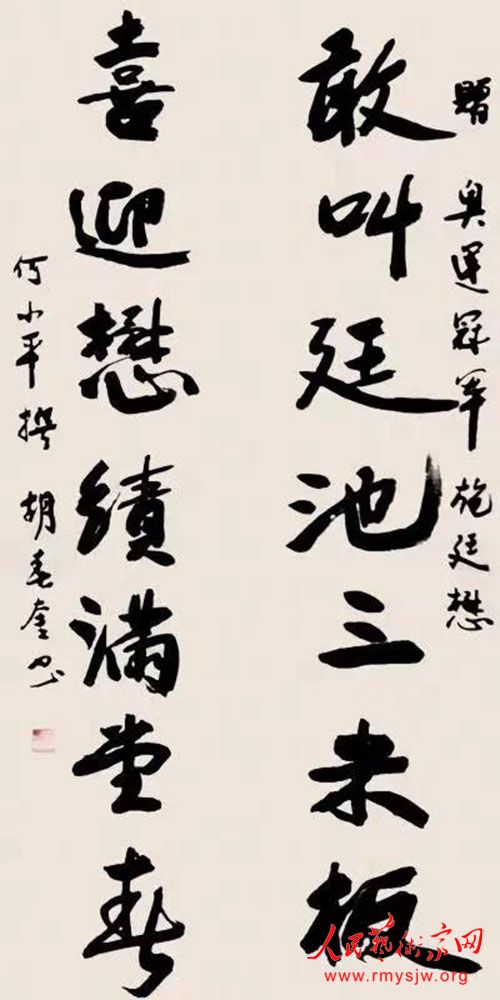 赠 奥运冠军 施廷懋
敢叫廷池三米板
喜迎懋绩满堂春
何小平撰 胡春奎书
人民艺术家网
www.rmysjw.org